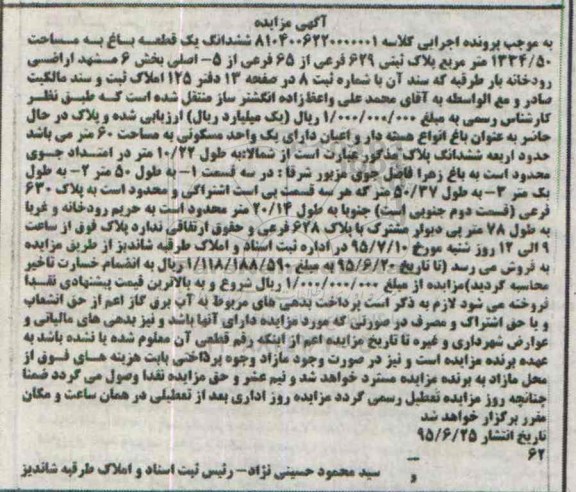 آگهی مزایده
به موجب پرونده اجرایی کلاسه ۸۱۰۴۰۰۶۲۲۰۰۰۰۰۰۱ ششدانگ یک قطعه باغ به مساحت
۱۳۳۴/۵۰ متر مربع پلاک ثبتی ۶۲۹ فرعی از ۶۵ فرعی از ۵- اصلی بخش ۶ مشهد اراضی
رودخانه بار طرقبه که سند آن با شماره ثبت ۸ در صفحه ۱۳ دفتر ۱۲۵ املاک ثبت و سند مالکیت
صادر و مع الواسطه به آقای محمد علی واعظ زاده انگشتر ساز منتقل شده است که طبق نظر
کارشناس رسمی به مبلغ ۱/۰۰۰/۰۰۰/۰۰۰ ریال (یک میلیارد ریال) ارزیابی شده و پلاک در حال
حاضر به عنوان باغ انواع هسته دار و اعیان دارای یک واحد مسکونی به مساحت ۶۰ متر می باشد
حدود اربعه ششدانگ پلاک مذکور عبارت است از شمالا:به طول ۱۰/۲۲ متر در امتداد جوی
محدود است به باغ زهرا فاضل جوی مزبور شرقا : در سه قسمت ۱- به طول ۵۰ متر ۲- به طول
یک متر ۳- به طول ۵۰/۳۷ متر که هر سه قسمت پی است اشتراکی و محدود است به پلاک ۶۳۰
فرعی (قسمت دوم جنوبی است) جنوبا به طول ۲۰/۱۴ متر محدود است به حریم رودخانه و غربا
به طول ۷۸ متر پی دیوار مشترک با پلاک ۶۲۸ فرعی و حقوق ارتفاقی ندارد پلاک فوق از ساعت
۹ الی ۱۲ روز شنبه مورخ ۹۵/۷/۱۰ در اداره ثبت اسناد و املاک طرقبه شاندیز از طریق مزایده
به فروش می رسد (تا تاریخ ۹۵/۶/۲۰ به مبلغ ۱/۱۱۸/۱۸۸/۵۱۰ ریال به انضمام خسارت تاخیر
محاسبه گردید)مزایده از مبلغ ۱/۰۰۰/۰۰۰/۰۰۰ ریال شروع و به بالاترین قیمت پیشنهادی نقدا
فروخته می شود لازم به ذکر است پرداخت بدهی های مربوط به آب برق گاز اعم از حق انشعاب
و یا حق اشتراک و مصرف در صورتی که مورد مزایده دارای آنها باشد و نیز بدهی های مالیاتی و
عوارض شهرداری و غیره تا تاریخ مزایده اعم از اینکه رقم قطعی آن معلوم شده یا نشده باشد به
عهده برنده مزایده است و نیز در صورت وجود مازاد وجوه پرداختی بابت هزینه های فوق از
محل مازاد به برنده مزایده مسترد خواهد شد و نیم عشر و حق مزایده نقدا وصول می گردد ضمنا
چنانچه روز مزایده تعطیل رسمی گردد مزایده روز اداری بعد از تعطیلی در همان ساعت و مکان
مقرر برگزار خواهد شد
تاریخ انتشار ۹۵/۶/۲۵
۶۲
سید محمود حسینی نژاد- رئیس ثبت اسناد و املاک طرقبه شاندیز